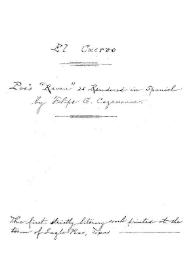 El Cuervo
Poe's "Raven" as Rendered in Spanish
by Felipe G. Cazeneuve.
The first strictly literary work printed at the
town of Eagle Pass, Texas